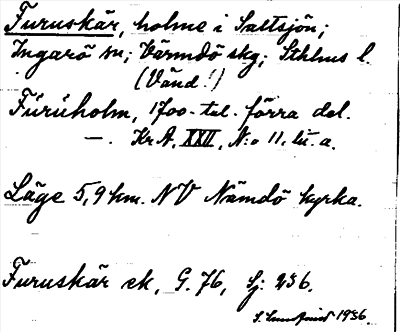 Furuskär, holme i Saltsjön;
Ingarö sn; Värmdö skg; Sthlms l.
(Vänd!)
Fŭrŭholm, 1700-tal. förra del.
—. KrA, XXII, N:o 11, lit. a.
Läge 5,9 km. NV Nämdö kyrka.
Furuskär ek, G. 76, Sj: 236.
1936.